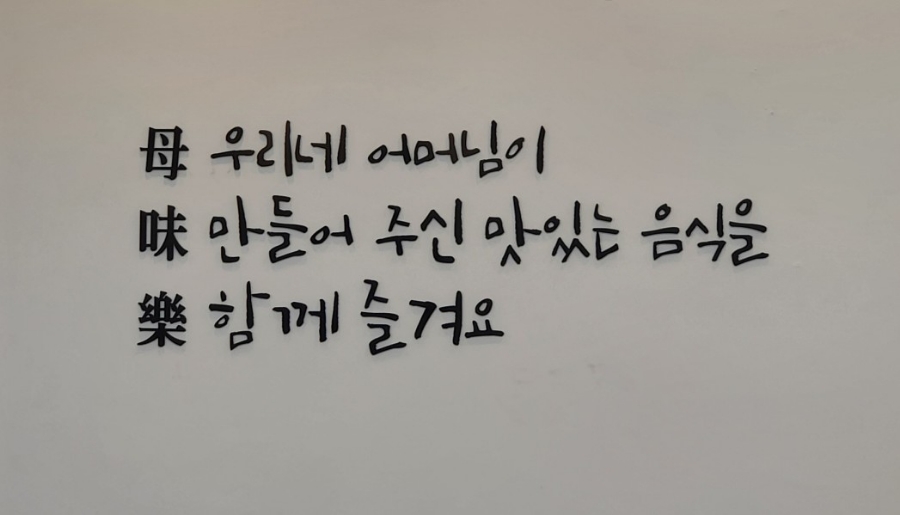 母 우리네 어머님이
味 만들어 주신 맛있는 음식을
樂 함께 즐겨요